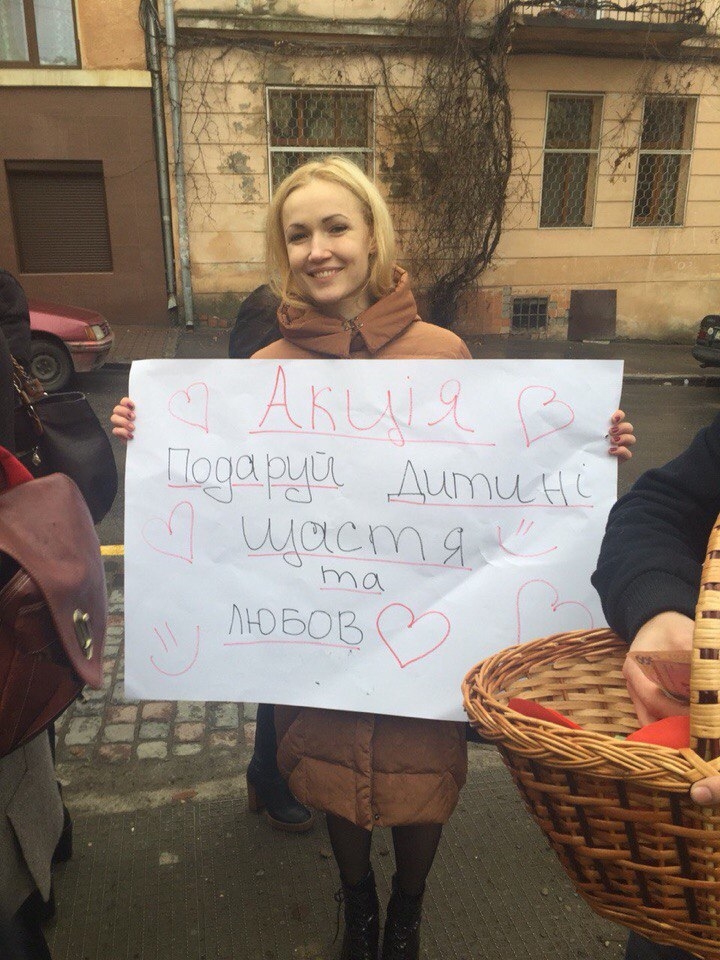 Акція
Подаруй Дитині
щастя
та
любов